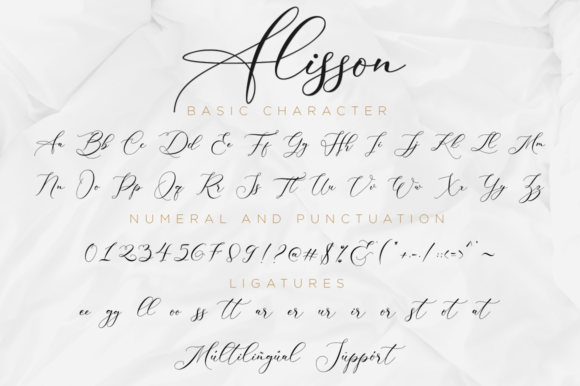 Alisson
BASIC CHARACTER
Aa Bb Cc Dd Ee Ff Gg Hh Ii Jj Kk Ll Mm
Nn Oo Pp Qq Rr Ss Tt Uu Vv Ww Xx Yy Zz
NUMERAL AND PUNCTUATION
0123456789!?@#$%&(*+-/::(=)^"~
LIGATURES
ee gg ll oo ss tt ar er ur ir or st ot at
Múltilingúal Súppórt